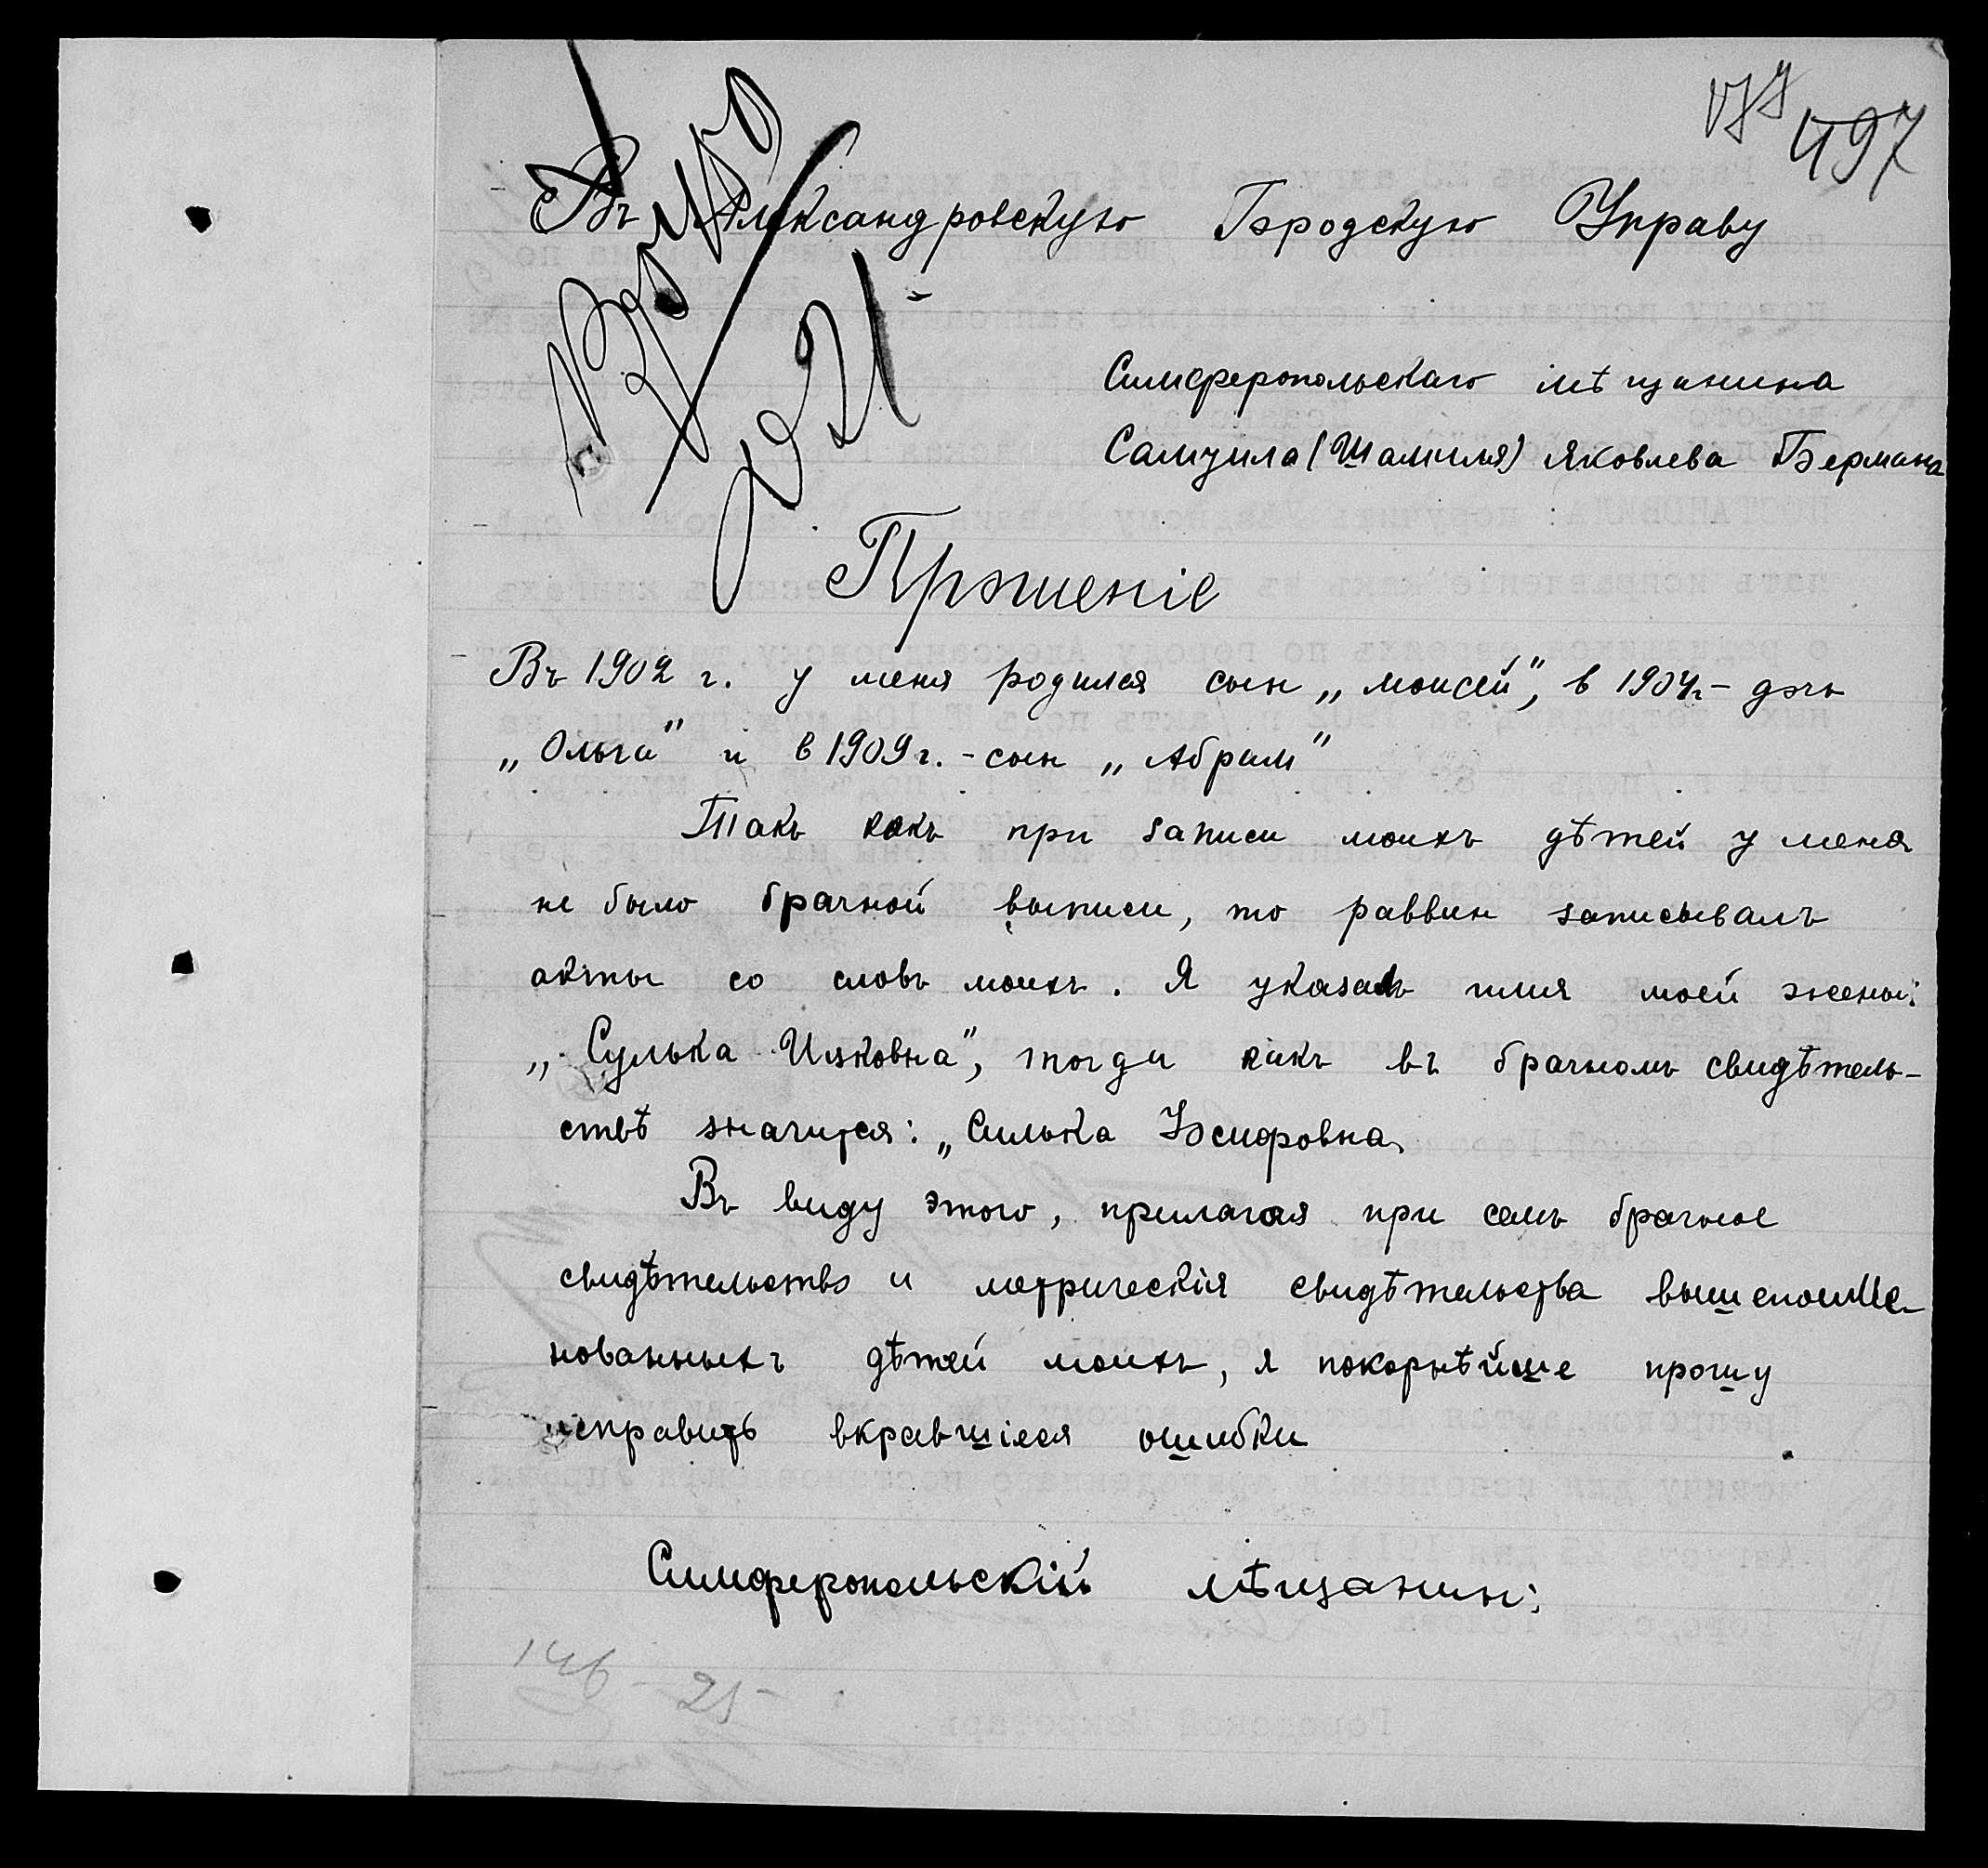 497
Въ Александровскую Городскую Управу
Симферопольскаго мѣщанина
Самуила (Шамиля) Яковлева Бермана
Прошеніе
Въ 1902 г. у меня родился сын „Моисей", в 1904г.- дочь
„Ольга" и в 1909г. - сын „Абрам"
Такъ какъ при записи моихъ дѣтей у меня
не было брачной выписи, то раввин записывалъ
акты со словъ моихъ. Я указалъ имя моей жены:
„Сулька Ицковна", тогда какъ въ брачномъ свидѣтель-
ствѣ значится: „Силька Іосифовна
Въ виду этого, прилагая при семъ брачное
свидѣтельство и метрическія свидѣтельства вышепоиме-
нованныхъ дѣтей моихъ, я покорнѣйше прошу
исправить вкравшіяся ошибки
Симферопольскій мѣщанин:
146 - 25 -